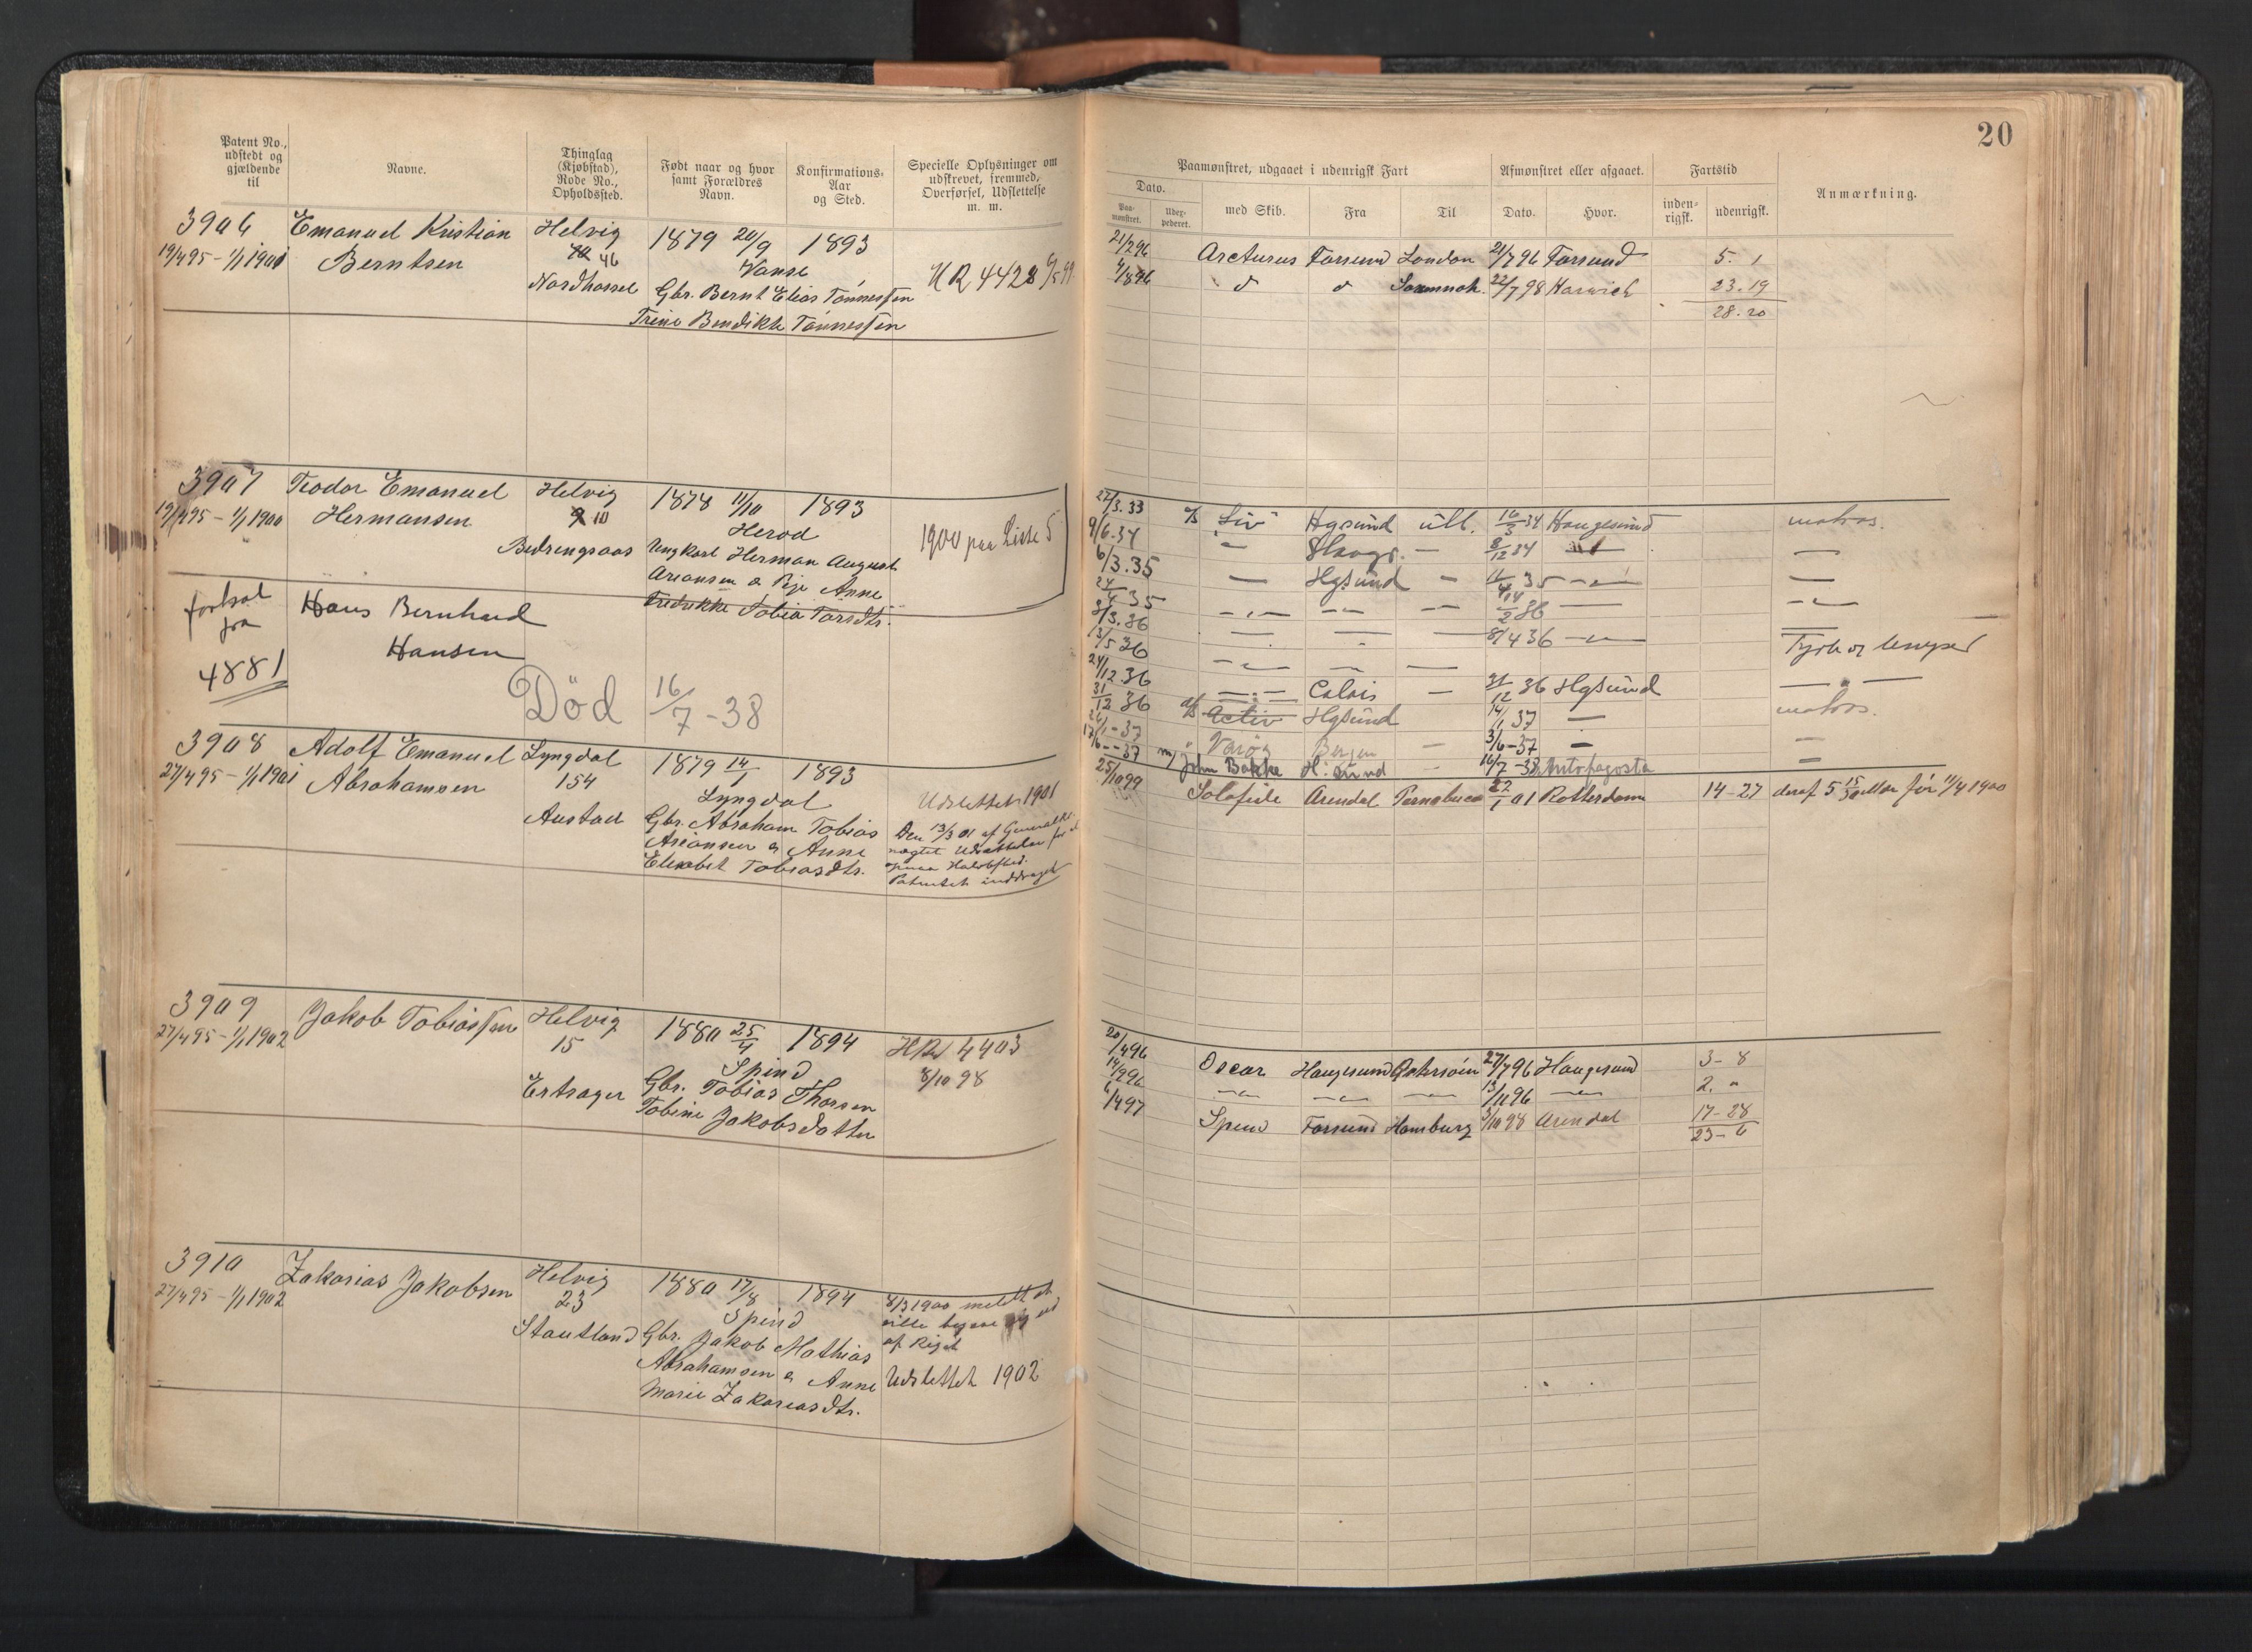 20
Patent No., udstedt og gjældende til
Navne.
Thinglag (Kjøbstad), Rode No., Opholdssted.
Født naar og hvor samt Forældres Navn.
Konfirmations-Aar og Sted.
Specielle Oplysninger om udskrevet, fremmed, Overførsel, Udslettelse m. m.
Paamønstret, udgaaet i udenrigsk Fart
Afmønstret eller afgaaet.
Fartstid
Anmærkning.
Dato.
Paa-mønstret.
Uder-pederet.
med Skib.
Fra
Til
Dato.
Hvor.
inden-rigsk.
udenrigsk.
3906 Emanuel Kristian Helvig 1879 20/9 1893
19/4 95 - 1/1 1901 Berntsen 46 Vanse HR 4428
Nordhassel Gbr. Bernt Elias Tønnessen
Trine Bendikte Tønnessen
21/2 96 Arcturus Farsund London 21/7 96 Farsund 5. 1
4/8 96 d d 22/7 98 Harwich 23.19
28.20
3907 Teodor Emanuel Helvig 1878 11/10 1893
19/4 95 - 1/1 1900 Hermansen 10 Herod 1900 paa Liste 5
Ungkarl Herman August
Ariansen & Pige Anne
Fredrikke Tobia Tarsdtr.
fortsat fra 4881
Hans Bernhard
Hansen
Død 16/7 - 38
22/3.33 "Liv" Hgsund utl. 16/3 34 Haugesund matros.
9/6.34 — — 8/12 34 — —
6/3.35 — Hgsund — 35 — —
24/4 35 — — — 86 — —
3/3.36 — — — 8/4 36 —
13/5 36 — — — Tyrk og
24/12.36 — Calais — 31/12 36 Hgsund —
31/12 36 Activ Hgsund 14/1 37 — matros.
37 Varøy Bergen — 3/6-37 — —
17/6 - 37 John Bakke H.sund — 16/7 - 38 Antofagosta —
3908 Adolf Emanuel Lyngdal 1879 14/1 1893
27/4 95 - 1/1 1901 Abrahamsen 154 Lyngdal Udslettet 1901
Austad Gbr. Abraham Tobias
Ariansen & Anne
Elisabet Tobiasdtr.
Den 13/3 01 af
nægtet
Patentet inddraget
25/10 99 Solafide Arendal Pernabuco 22/1 01 Rotterdam 14-27 deraf 5 15/30 Mdr før 11/4 1900
3909 Jakob Tobiassen Helvig 1880 25/4 1894 HR 4403
27/4 95 - 1/1 1902 15 Spind 8/10 98
Ertsager Gbr. Tobias Thorsen
Tobine Jakobsdatter
20/4 96 Oscar Haugesund 27/7 96 Haugesund 3-8
14/9 96 — — — 13/11 96 — 2. "
6/4 97 Spind Farsund Hamburg 3/10 98 Arendal 17-28
23-6
3910 Zakarias Jakobsen Helvig 1880 17/8 1894
27/4 95 - 1/1 1902 23 Spind
Stautland Gbr. Jakob Mathias
Abrahamsen & Anne
Marie Zakariasdtr.
8/3 1900 meldt at
ville
af Riget
Udslettet 1902